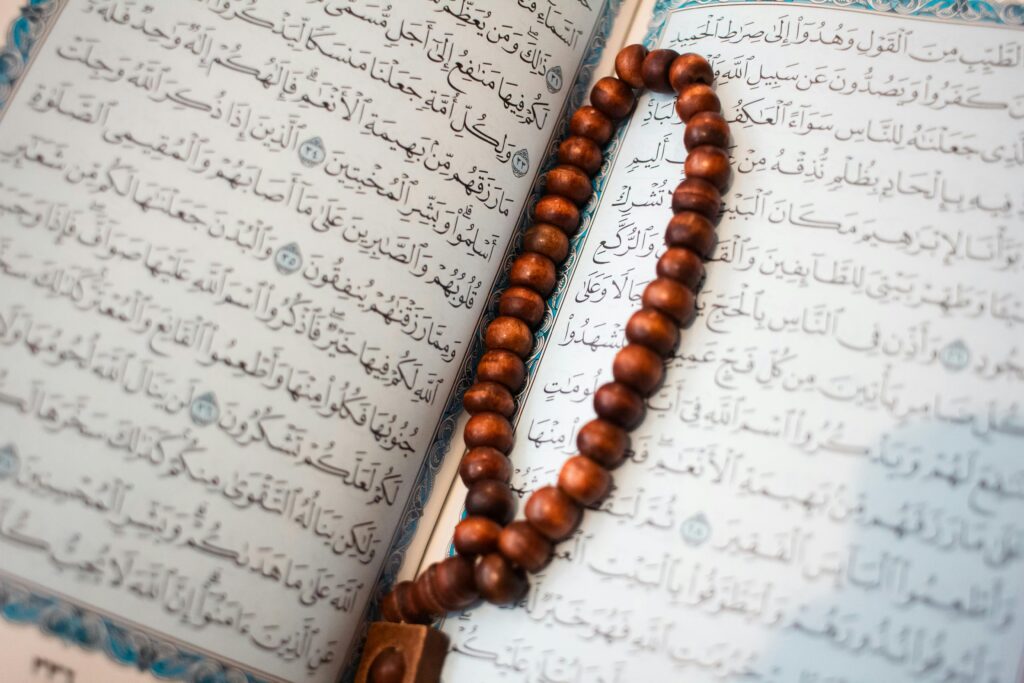 ٱلطَّيِّبِ مِنَ ٱلْقَوْلِ وَهُدُوٓا۟ إِلَىٰ صِرَٰطِ ٱلْحَمِيدِ
كَفَرُوا۟ وَيَصُدُّونَ عَن سَبِيلِ ٱللَّهِ
ٱلَّذِى جَعَلْنَٰهُ لِلنَّاسِ سَوَآءً ٱلْعَٰكِفُ
فِيهِ بِإِلْحَادٍۭ بِظُلْمٍ نُّذِقْهُ مِنْ أَلِيمٍ
بَوَّأْنَا لِإِبْرَٰهِيمَ مَكَانَ ٱلْبَيْتِ تُشْرِكْ
وَطَهِّرْ بَيْتِىَ لِلطَّآئِفِينَ وَٱلرُّكَّعِ
وَأَذِّن فِى ٱلنَّاسِ بِٱلْحَجِّ وَعَلَىٰ
ضَامِرٍ يَأْتِينَ مِن كُلِّ فَجٍّ
لَهُمْ وَيَذْكُرُوا۟ ٱسْمَ ٱللَّهِ فِىٓ
مَا رَزَقَهُم مِّنۢ بَهِيمَةِ ٱلْأَنْعَٰمِ مِنْهَا
وَأَطْعِمُوا۟ ٱلْبَآئِسَ ٱلْفَقِيرَ ٢٨ ثُمَّ
وَلْيُوفُوا۟ نُذُورَهُمْ وَلْيَطَّوَّفُوا۟ بِٱلْبَيْتِ
حُرُمَٰتِ ٱللَّهِ فَهُوَ خَيْرٌ
عَلَيْكُمْ
ٱلسَّمَآءِ
ذَٰلِكَ وَمَن يُعَظِّمْ
لَكُمْ فِيهَا مَنَٰفِعُ إِلَىٰٓ أَجَلٍ مُّسَمًّى
٣٣ وَلِكُلِّ أُمَّةٍ جَعَلْنَا مَنسَكًا لِّيَذْكُرُوا۟
مَا رَزَقَهُم مِّنۢ بَهِيمَةِ ٱلْأَنْعَٰمِ فَإِلَٰهُكُمْ إِلَٰهٌ وَٰحِدٌ فَلَهُۥٓ
أَسْلِمُوا۟ وَبَشِّرِ ٱلْمُخْبِتِينَ ٣٤ ٱلَّذِينَ إِذَا ذُكِرَ ٱللَّهُ وَجِلَتْ
قُلُوبُهُمْ وَٱلصَّٰبِرِينَ عَلَىٰ مَآ أَصَابَهُمْ وَٱلْمُقِيمِى ٱلصَّلَوٰةِ
وَمِمَّا رَزَقْنَٰهُمْ يُنفِقُونَ ٣٥ وَٱلْبُدْنَ جَعَلْنَٰهَا لَكُم مِّن شَعَٰٓئِرِ
ٱللَّهِ لَكُمْ فِيهَا خَيْرٌ فَٱذْكُرُوا۟ ٱسْمَ ٱللَّهِ عَلَيْهَا صَوَآفَّ فَإِذَا وَجَبَتْ
جُنُوبُهَا فَكُلُوا۟ مِنْهَا وَأَطْعِمُوا۟ ٱلْقَانِعَ وَٱلْمُعْتَرَّ كَذَٰلِكَ
لَكُمْ لَعَلَّكُمْ تَشْكُرُونَ ٣٦ لَن يَنَالَ ٱللَّهَ لُحُومُهَا وَلَا
وَلَٰكِن يَنَالُهُ ٱلتَّقْوَىٰ مِنكُمْ كَذَٰلِكَ سَخَّرَهَا
ٱللَّهَ عَلَىٰ مَا هَدَىٰكُمْ وَبَشِّرِ ٱلْمُحْسِنِينَ
عَنِ ٱلَّذِينَ ءَامَنُوٓا۟ إِنَّ ٱللَّهَ لَا يُحِبُّ
٣٣٦